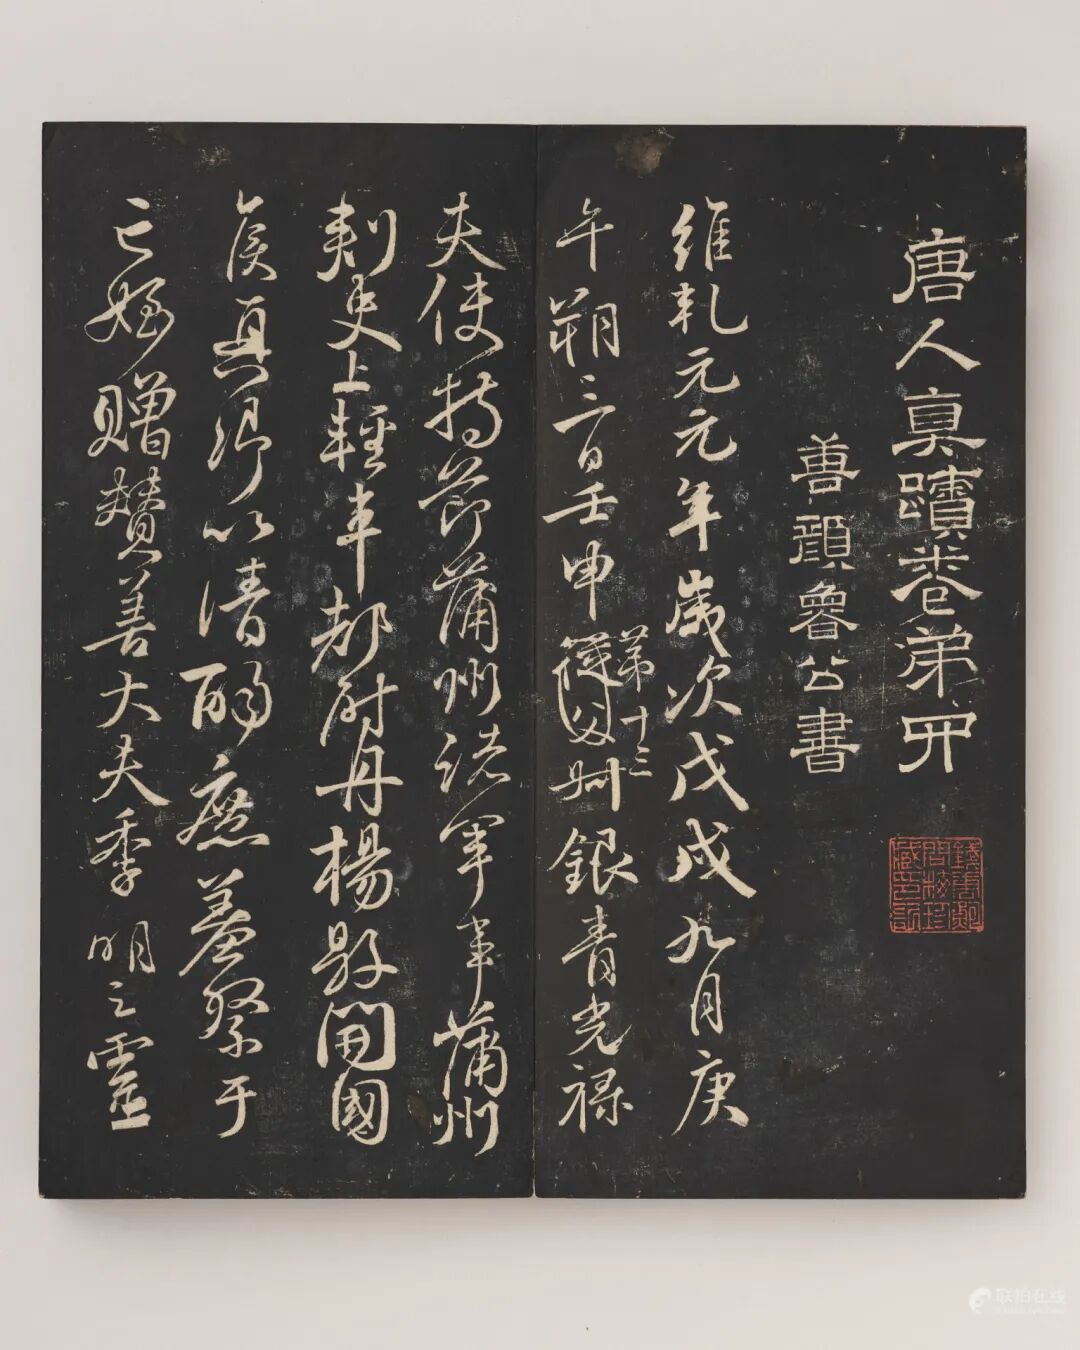 唐人真蹟卷弟四
善顏魯公書
維乹元元年歲次戊戌九月庚
午朔三日壬申第十三從父叔銀青光祿
夫使持節蒲州諸軍事蒲州
刺史上輕車都尉丹楊縣開國
侯真卿以清酌庶羞祭于
亡姪贈贊善大夫季明之靈
联拍在线